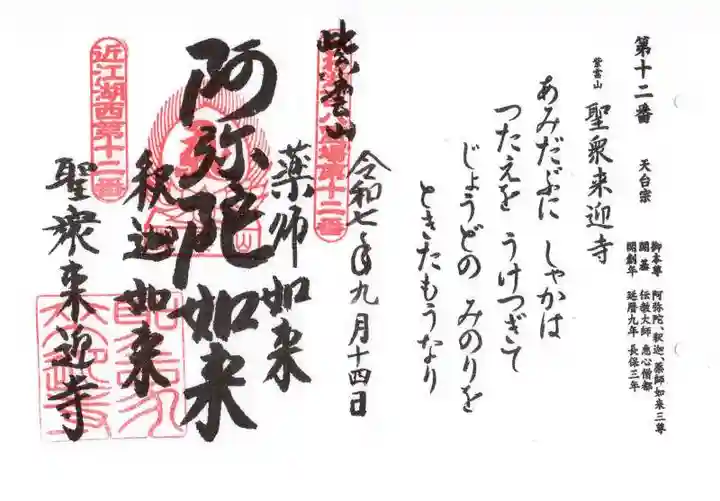 第十二番 天台宗
紫雲山 聖衆来迎寺
御本尊 阿弥陀、釈迦、薬師如来三尊
開基 伝教大師 恵心僧都
開創年 延暦九年 長保三年
あみだぶに しゃかは
つたえを うけつぎて
じょうどの みのりを
ときたもうなり
令和七年九月十四日
紫雲山
薬師如来
阿弥陀如来
釈迦如来
近江湖西第十二番
聖衆来迎寺